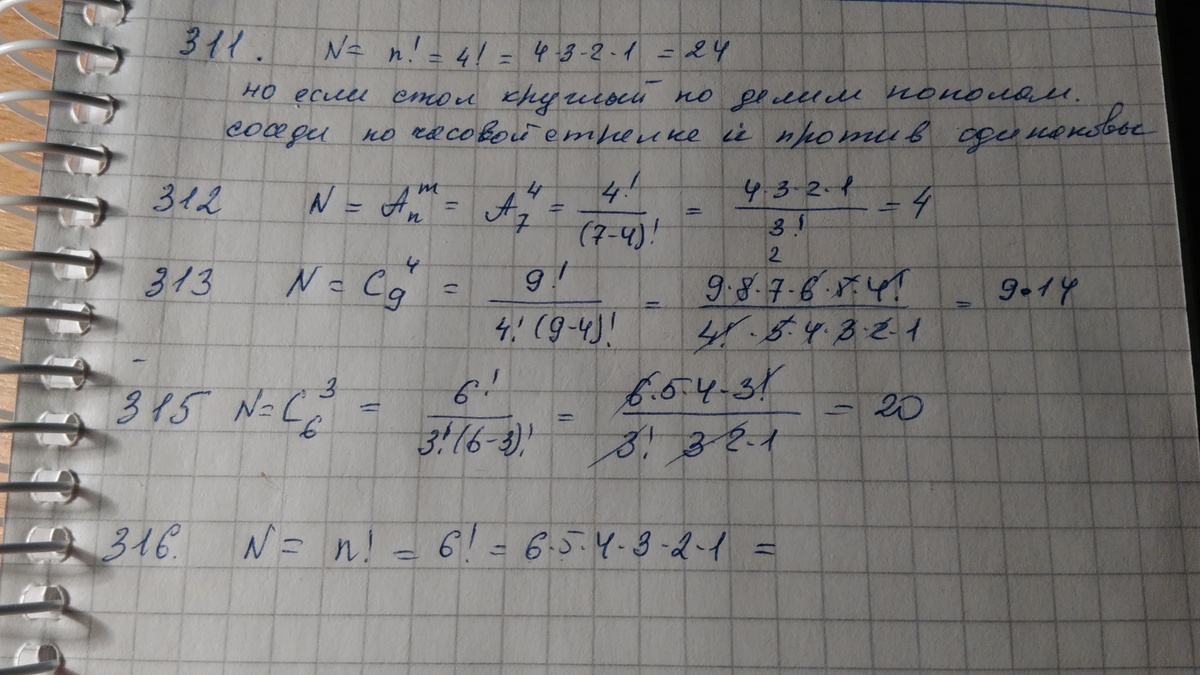 311. N = n! = 4! = 4·3·2·1 = 24
но если стол круглый по делим пополам.
соседи по часовой стрелке и против одинаковы
312 N = A_n^m = A_7^4 = 4!/(7-4)! = 4·3·2·1/3! = 4
2
313 N = C_9^4 = 9!/4!(9-4)! = 9·8·7·6·5·4!/4!·5·4·3·2·1 = 9·14
315 N = C_6^3 = 6!/3!(6-3)! = 6·5·4·3!/3! 3·2·1 = 20
316. N = n! = 6! = 6·5·4·3·2·1 =